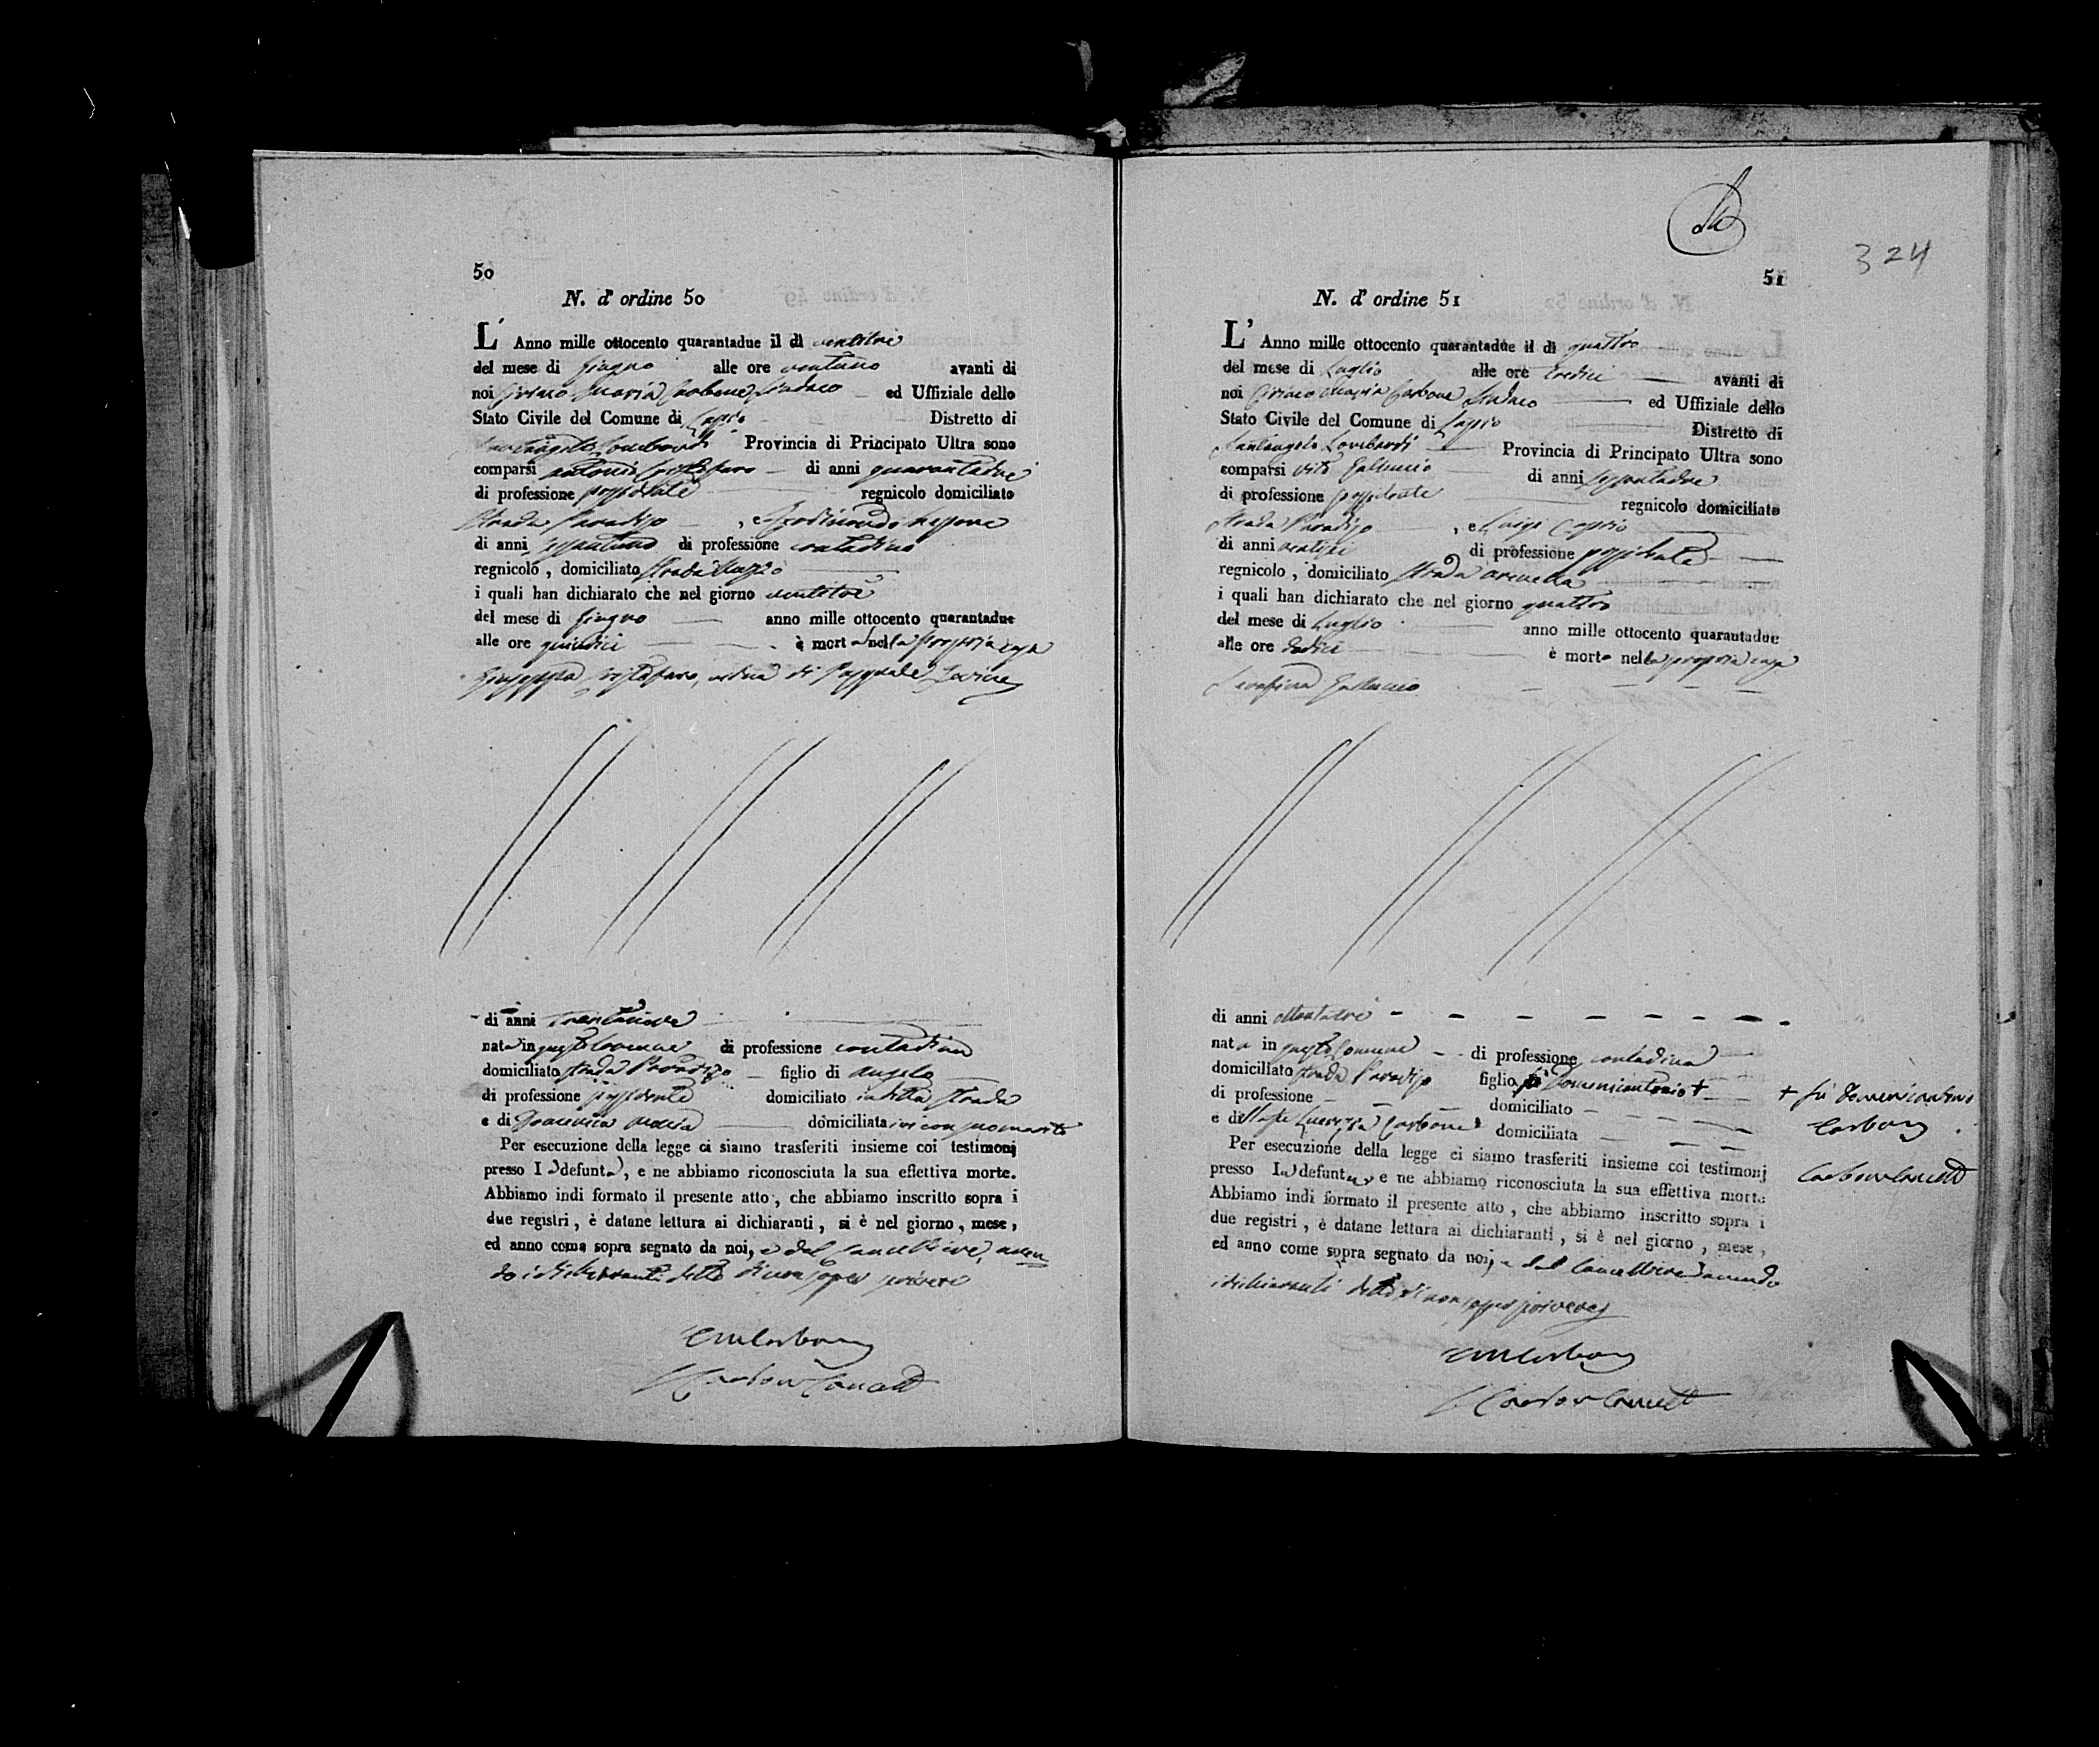 50
N. d' ordine 50
L' Anno mille ottocento quarantadue il dì ventitre
del mese di Giugno alle ore ventuno avanti di
noi Ciriaco Maria Carbone Sindaco ed Uffiziale dello
Stato Civile del Comune di Lapio Distretto di
Santangelo Lombardi Provincia di Principato Ultra sono
comparsi antonio Cristofaro di anni quarantadue
di professione possidente regnicolo domiciliato
strada Paradiso , e Ferdinando
di anni sessantuno di professione contadino
regnicolo , domiciliato strada
i quali han dichiarato che nel giorno ventitre
del mese di Giugno anno mille ottocento quarantadue
alle ore quindici è morta nella propria casa
Giuseppa Cristofaro, vedova di Pasquale
di anni trentanove
nata in questo Comune di professione contadina
domiciliato strada Paradiso figlio di angelo
di professione possidente domiciliato in detta strada
e di Domenica domiciliata ivi con suo marito
Per esecuzione della legge ci siamo trasferiti insieme coi testimonj
presso la defunta, e ne abbiamo riconosciuta la sua effettiva morte.
Abbiamo indi formato il presente atto , che abbiamo inscritto sopra i
due registri , è datane lettura ai dichiaranti , si è nel giorno , mese ,
ed anno come sopra segnato da noi, e dal Cancelliere, aven
do i dichiaranti detto di non saper scrivere
CMCarbone
Carbone Cancell
324
51
N. d' ordine 51
L' Anno mille ottocento quarantadue il dì quattro
del mese di Luglio alle ore tredici avanti di
noi Ciriaco Maria Carbone Sindaco ed Uffiziale dello
Stato Civile del Comune di Lapio Distretto di
Santangelo Lombardi Provincia di Principato Ultra sono
comparsi Vito Galluccio di anni sessantadue
di professione possidente regnicolo domiciliato
strada Paradiso , e Luigi Caprio
di anni ventisei di professione possidente
regnicolo , domiciliato strada
i quali han dichiarato che nel giorno quattro
del mese di Luglio anno mille ottocento quarantadue
alle ore dodici è morta nella propria casa
Serafina Galluccio
di anni ottantatre
nata in questo Comune di professione contadina
domiciliato strada Paradiso figlio fu Domenicantonio +
di professione domiciliato
e di Lucrezia Carbone domiciliata
+ fu Domenicantonio
Carbone
Carbone Cancell
Per esecuzione della legge ci siamo trasferiti insieme coi testimonj
presso la defunta, e ne abbiamo riconosciuta la sua effettiva morte
Abbiamo indi formato il presente atto , che abbiamo inscritto sopra i
due registri , è datane lettura ai dichiaranti , si è nel giorno , mese ,
ed anno come sopra segnato da noi, e dal Cancelliere avendo
i dichiaranti detto di non saper scrivere
CMCarbone
Carbone Cancell